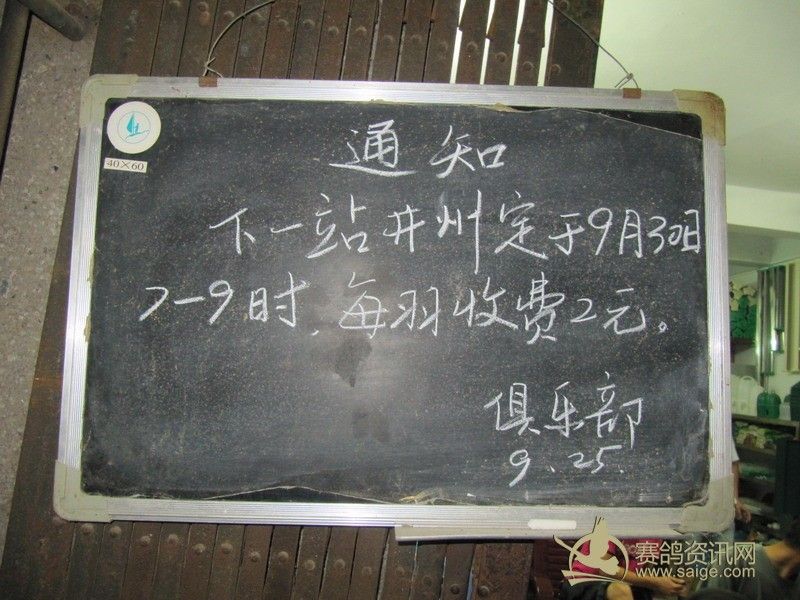 40×60
通知
下一站井州定于9月30日
7-9时,每羽收费2元。
俱乐部
9.25.
赛鸽资讯网
www.saige.com